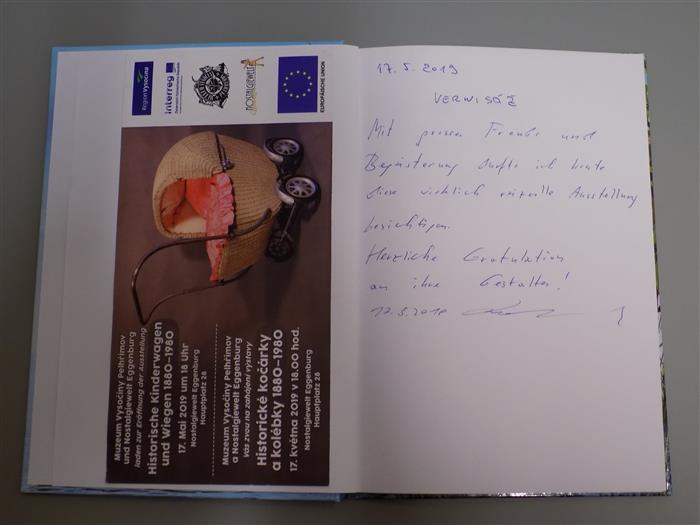 RegionVysočina
Interreg
NOSTALGIEWELT
EUROPÄISCHE UNION
Muzeum Vysočiny Pelhřimov
und Nostalgiewelt Eggenburg
laden zur Eröffnung der Ausstellung
Historische Kinderwagen
und Wiegen 1880–1980
17. Mai 2019 um 18 Uhr
Nostalgiewelt Eggenburg
Hauptplatz 28
Muzeum Vysočiny Pelhřimov
a Nostalgiewelt Eggenburg
Vás zvou na zahájení výstavy
Historické kočárky
a kolébky 1880–1980
17. května 2019 v 18.00 hod.
Nostalgiewelt Eggenburg
Hauptplatz 28
17. 5. 2019
VERNISÁŽ
Mit grosser Freude und
Begeisterung durfte ich heute
diese wirklich reizvolle Ausstellung
besichtigen.
Herzliche Gratulation
an ihre Gestalter!
17.5.2019